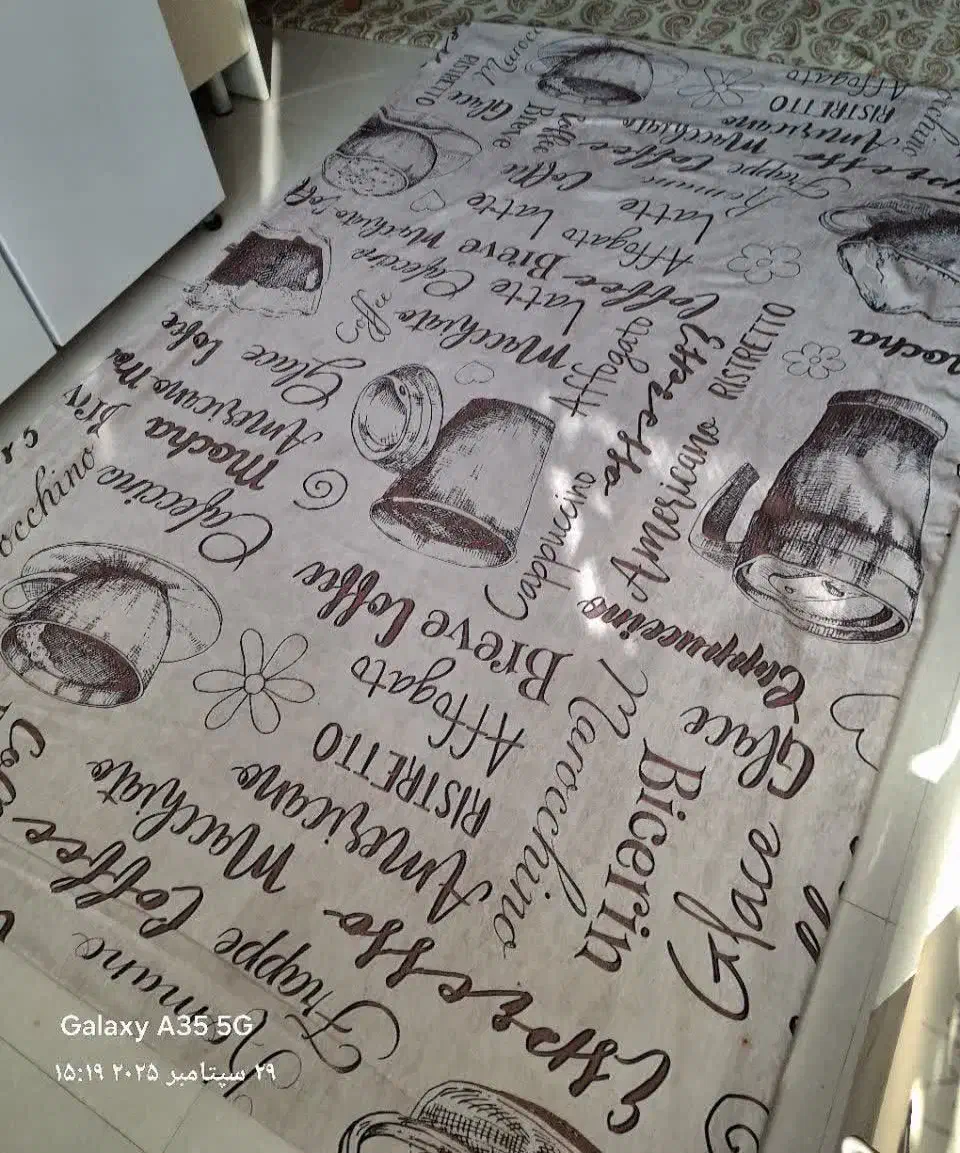 Maroc
RISTRETTO
Glace
Breve
Coffee
Affogato
RISTRETTO
Americano
Macchiato
Coffee
Frappe
Romano
Latte
Coffee
Latte
Affogato
Coffee
Breve
Macchiato
Cafeccino
Latte
Coffee
Macchiato
mocha
Espresso
Affogato
RISTRETTO
Americano
Cappuccino
Coffee
Glace
Americano
mocha
Cafeccino
occhino
Coffee
Breve
Cappuccino
Affogato
RISTRETTO
Marocchino
Glace
Bicerin
Glace
Americano
Macchiato
Coffee
Espresso
Frappe
Romano
Galaxy A35 5G
۲۹ سپتامبر ۲۰۲۵ ۱۵:۱۹